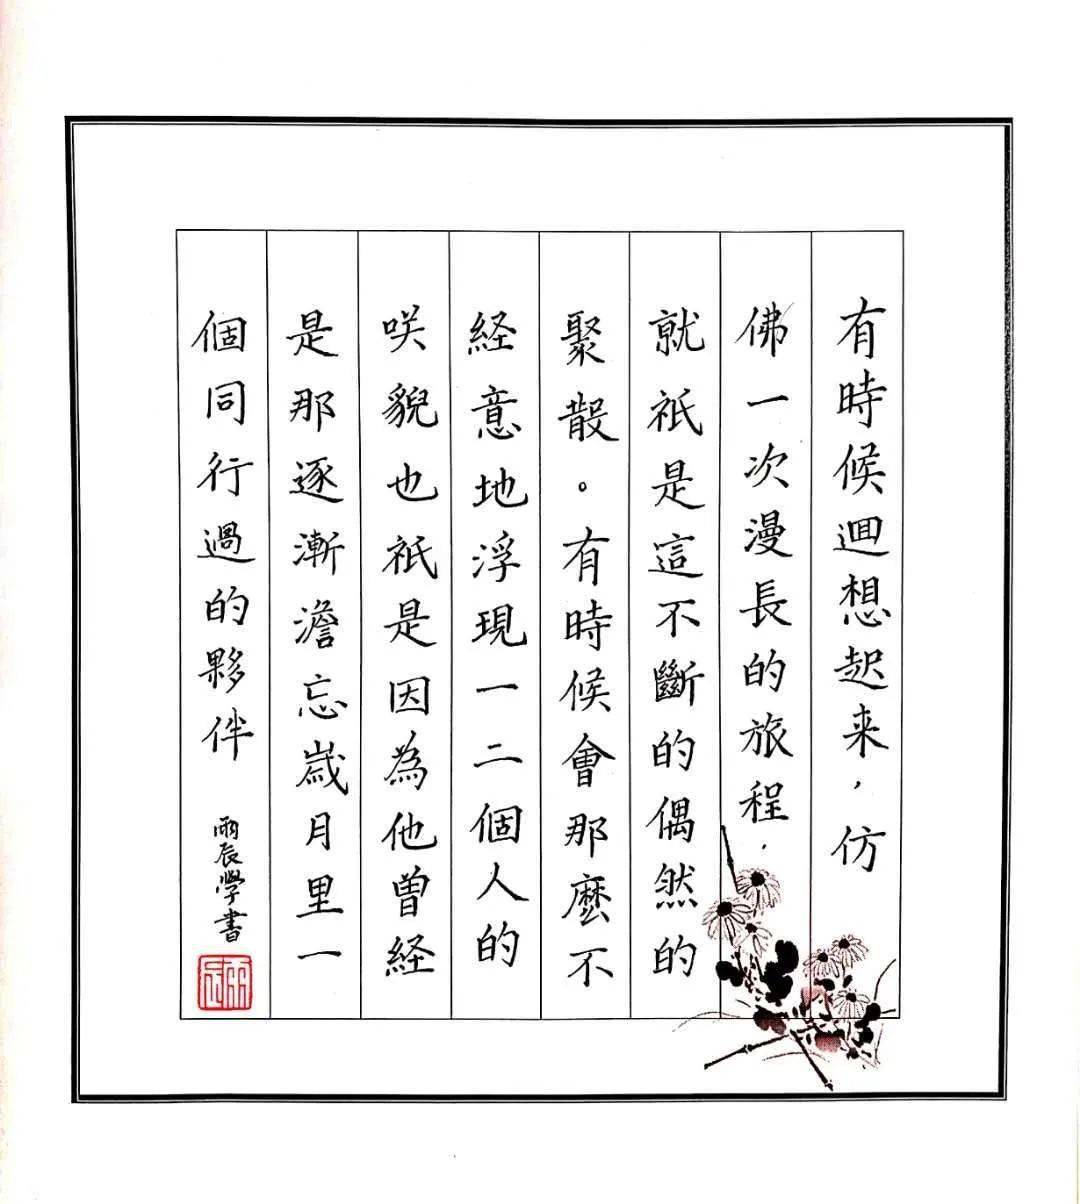 有時候迴想起来，仿
佛一次漫長的旅程，
就祇是這不斷的偶然的
聚散。有時候會那麼不
経意地浮現一二個人的
咲貌也祇是因為他曾経
是那逐漸澹忘歲月里一
個同行過的夥伴
雨辰學書
雨辰